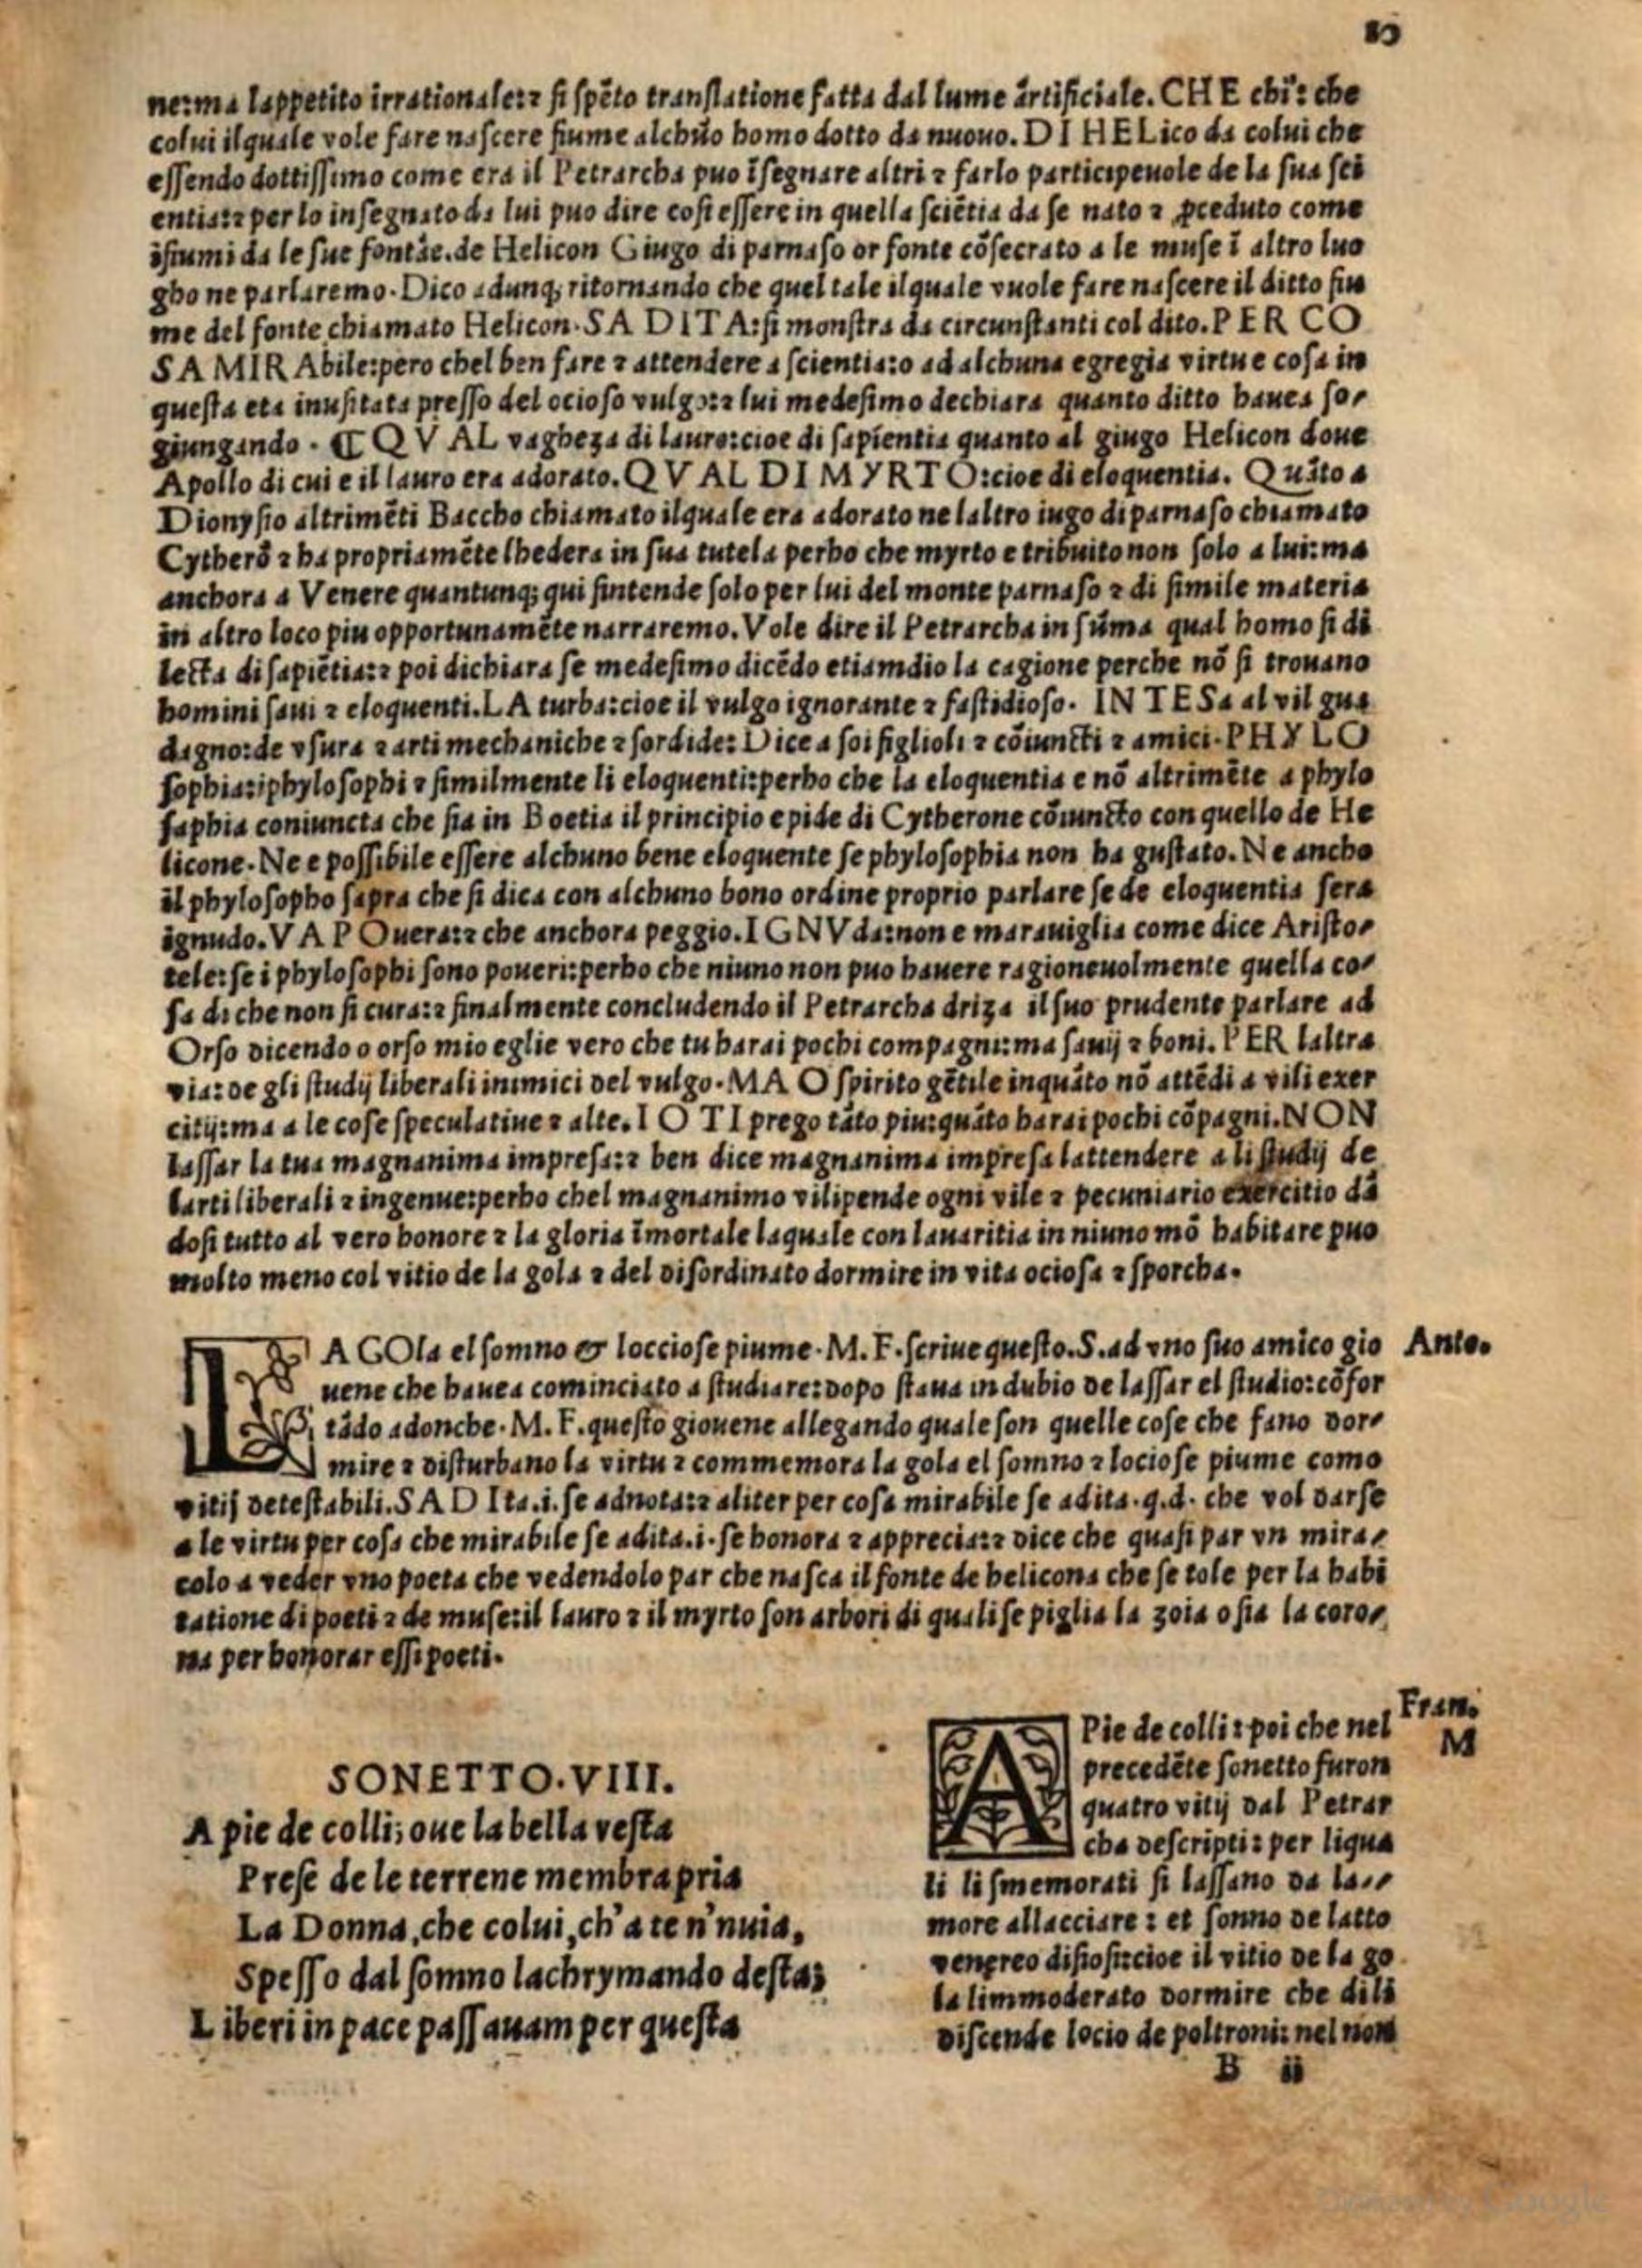 10
ne:ma lappetito irrationale:⁊ ſi ſpẽto tranſlatione fatta dal lume ãrtificiale. CHE chi: che
colui ilquale vole fare naſcere fiume alchũo homo dotto da nuouo. DI HELico da colui che
eſſendo dottiſſimo come era il Petrarcha puo ĩſegnare altri ⁊ farlo participeuole de la ſua ſci
entia:⁊ per lo inſegnato da lui puo dire coſi eſſere in quella ſciẽtia da ſe nato ⁊ ꝓceduto come
ifiumi da le ſue fontãe. de Helicon Giugo di parnaſo or fonte cõſecrato a le muſe ĩ altro luo
gho ne parlaremo. Dico adunq; ritornando che quel tale ilquale vuole fare naſcere il ditto fiu
me del fonte chiamato Helicon. SA DITA: ſi monſtra da circunſtanti col dito. PER CO
SA MIRAbile: pero chel ben fare ⁊ attendere a ſcientia:o ad alchuna egregia virtu e coſa in
queſta eta inuſitata preſſo del ocioſo vulgo:⁊ lui medeſimo dechiara quanto ditto hauea ſo-
giungando. ¶ QVAL vagheza di lauro: cioe di ſapientia quanto al giugo Helicon doue
Apollo di cui e il lauro era adorato. QVAL DI MYRTO: cioe di eloquentia. Quãto a
Dionyſio altrimẽti Baccho chiamato ilquale era adorato ne laltro iugo di parnaſo chiamato
Cytherõ ⁊ ha propriamẽte lhedera in ſua tutela perho che myrto e tribuito non ſolo a lui: ma
anchora a Venere quantunq; qui ſintende ſolo per lui del monte parnaſo ⁊ di ſimile materia
in altro loco piu opportunamẽte narraremo. Vole dire il Petrarcha in ſũma qual homo ſi di
lecta di ſapiẽtia:⁊ poi dichiara ſe medeſimo dicẽdo etiamdio la cagione perche nõ ſi trouano
homini ſaui ⁊ eloquenti. LA turba: cioe il vulgo ignorante ⁊ faſtidioſo. INTESa al vil gua
dagno: de vſura ⁊ arti mechaniche ⁊ ſordide: Dice a ſoi figlioli ⁊ cõiuncti ⁊ amici. PHYLO
ſophia: iphyloſophi ⁊ ſimilmente li eloquenti: perho che la eloquentia e nõ altrimẽte a phylo
ſaphia coniuncta che ſia in Boetia il principio e pide di Cytherone cõiuncto con quello de He
licone. Ne e poſſibile eſſere alchuno bene eloquente ſe phyloſophia non ha guſtato. Ne ancho
il phyloſopho ſapra che ſi dica con alchuno bono ordine proprio parlare ſe de eloquentia ſera
ignudo. VA POuera:⁊ che anchora peggio. IGNVda: non e marauiglia come dice Ariſto-
tele: ſe i phyloſophi ſono poueri: perho che niuno non puo hauere ragioneuolmente quella co-
ſa di che non ſi cura:⁊ finalmente concludendo il Petrarcha driza il ſuo prudente parlare ad
Orſo dicendo o orſo mio eglie vero che tu harai pochi compagni: ma ſauij ⁊ boni. PER laltra
via: de gli ſtudij liberali inimici del vulgo. MA O ſpirito gẽtile inquãto nõ attẽdi a vili exer
citij: ma a le coſe ſpeculatiue ⁊ alte. IO TI prego tãto piu: quãto harai pochi cõpagni. NON
laſſar la tua magnanima impreſa:⁊ ben dice magnanima impreſa lattendere a li ſtudij de
larti liberali ⁊ ingenue: perho chel magnanimo vilipende ogni vile ⁊ pecuniario exercitio dã
doſi tutto al vero honore ⁊ la gloria ĩmortale laquale con lauaritia in niuno mõ habitare puo
molto meno col vitio de la gola ⁊ del diſordinato dormire in vita ocioſa ⁊ ſporcha.
LA GOla el ſomno & locciofe piume. M. F. ſcriue queſto. S. ad vno ſuo amico gio Anto.
uene che hauea cominciato a ſtudiare: dopo ſtaua in dubio de laſſar el ſtudio: cõfor
tãdo adonche. M. F. queſto giouene allegando quale ſon quelle coſe che fano dor-
mire ⁊ diſturbano la virtu ⁊ commemora la gola el ſomno ⁊ locioſe piume como
vitij deteſtabili. SADIta. i. ſe adnota:⁊ aliter per coſa mirabile ſe adita. q. d. che vol darſe
a le virtu per coſa che mirabile ſe adita. i. ſe honora ⁊ apprecia:⁊ dice che quaſi par vn mira-
colo a veder vno poeta che vedendolo par che naſca il fonte de helicona che ſe tole per la habi
tatione di poeti ⁊ de muſe: il lauro ⁊ il myrto ſon arbori di quali ſe piglia la zoia o ſia la coro-
na per honorar eſſi poeti.
SONETTO. VIII.
A pie de colli; oue la bella veſta
Preſe de le terrene membra pria
La Donna, che colui, ch'a te n'nuia,
Speſſo dal ſomno lachrymando deſta;
Liberi in pace paſſauam per queſta
Fran.
M
A Pie de colli: poi che nel
precedẽte ſonetto furon
quatro vitij dal Petrar
cha deſcripti: per liqua
li li ſmemorati ſi laſſano da la-
more allacciare: et ſonno de latto
venereo diſioſi: cioe il vitio de la go
la limmoderato dormire che di li
diſcende locio de poltroni: nel non
B ii
Digitized by Google